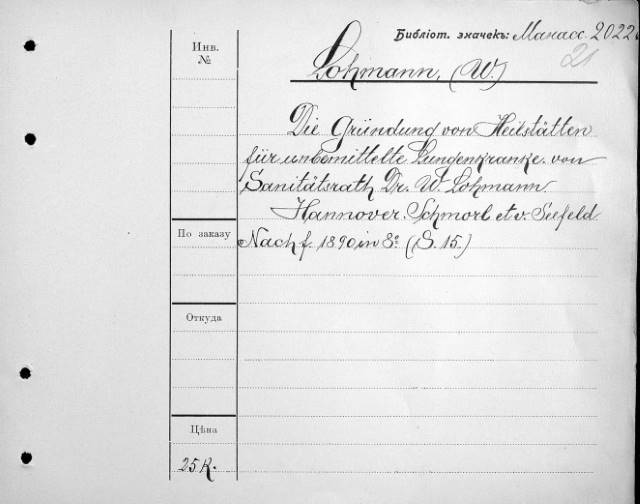 Библіот. значекъ: Манасс. 2022
21
Инв.
№
Lohmann, (W.)
Die Gründung von Heilstätten
für unbemittelte Lungenkranke. von
Sanitätsrath Dr. W. Lohmann.
Hannover. Schmorl et v. Seefeld
Nachf. 1890 in 8º (S. 15.)
По заказу
Откуда
Цѣна
25 К.